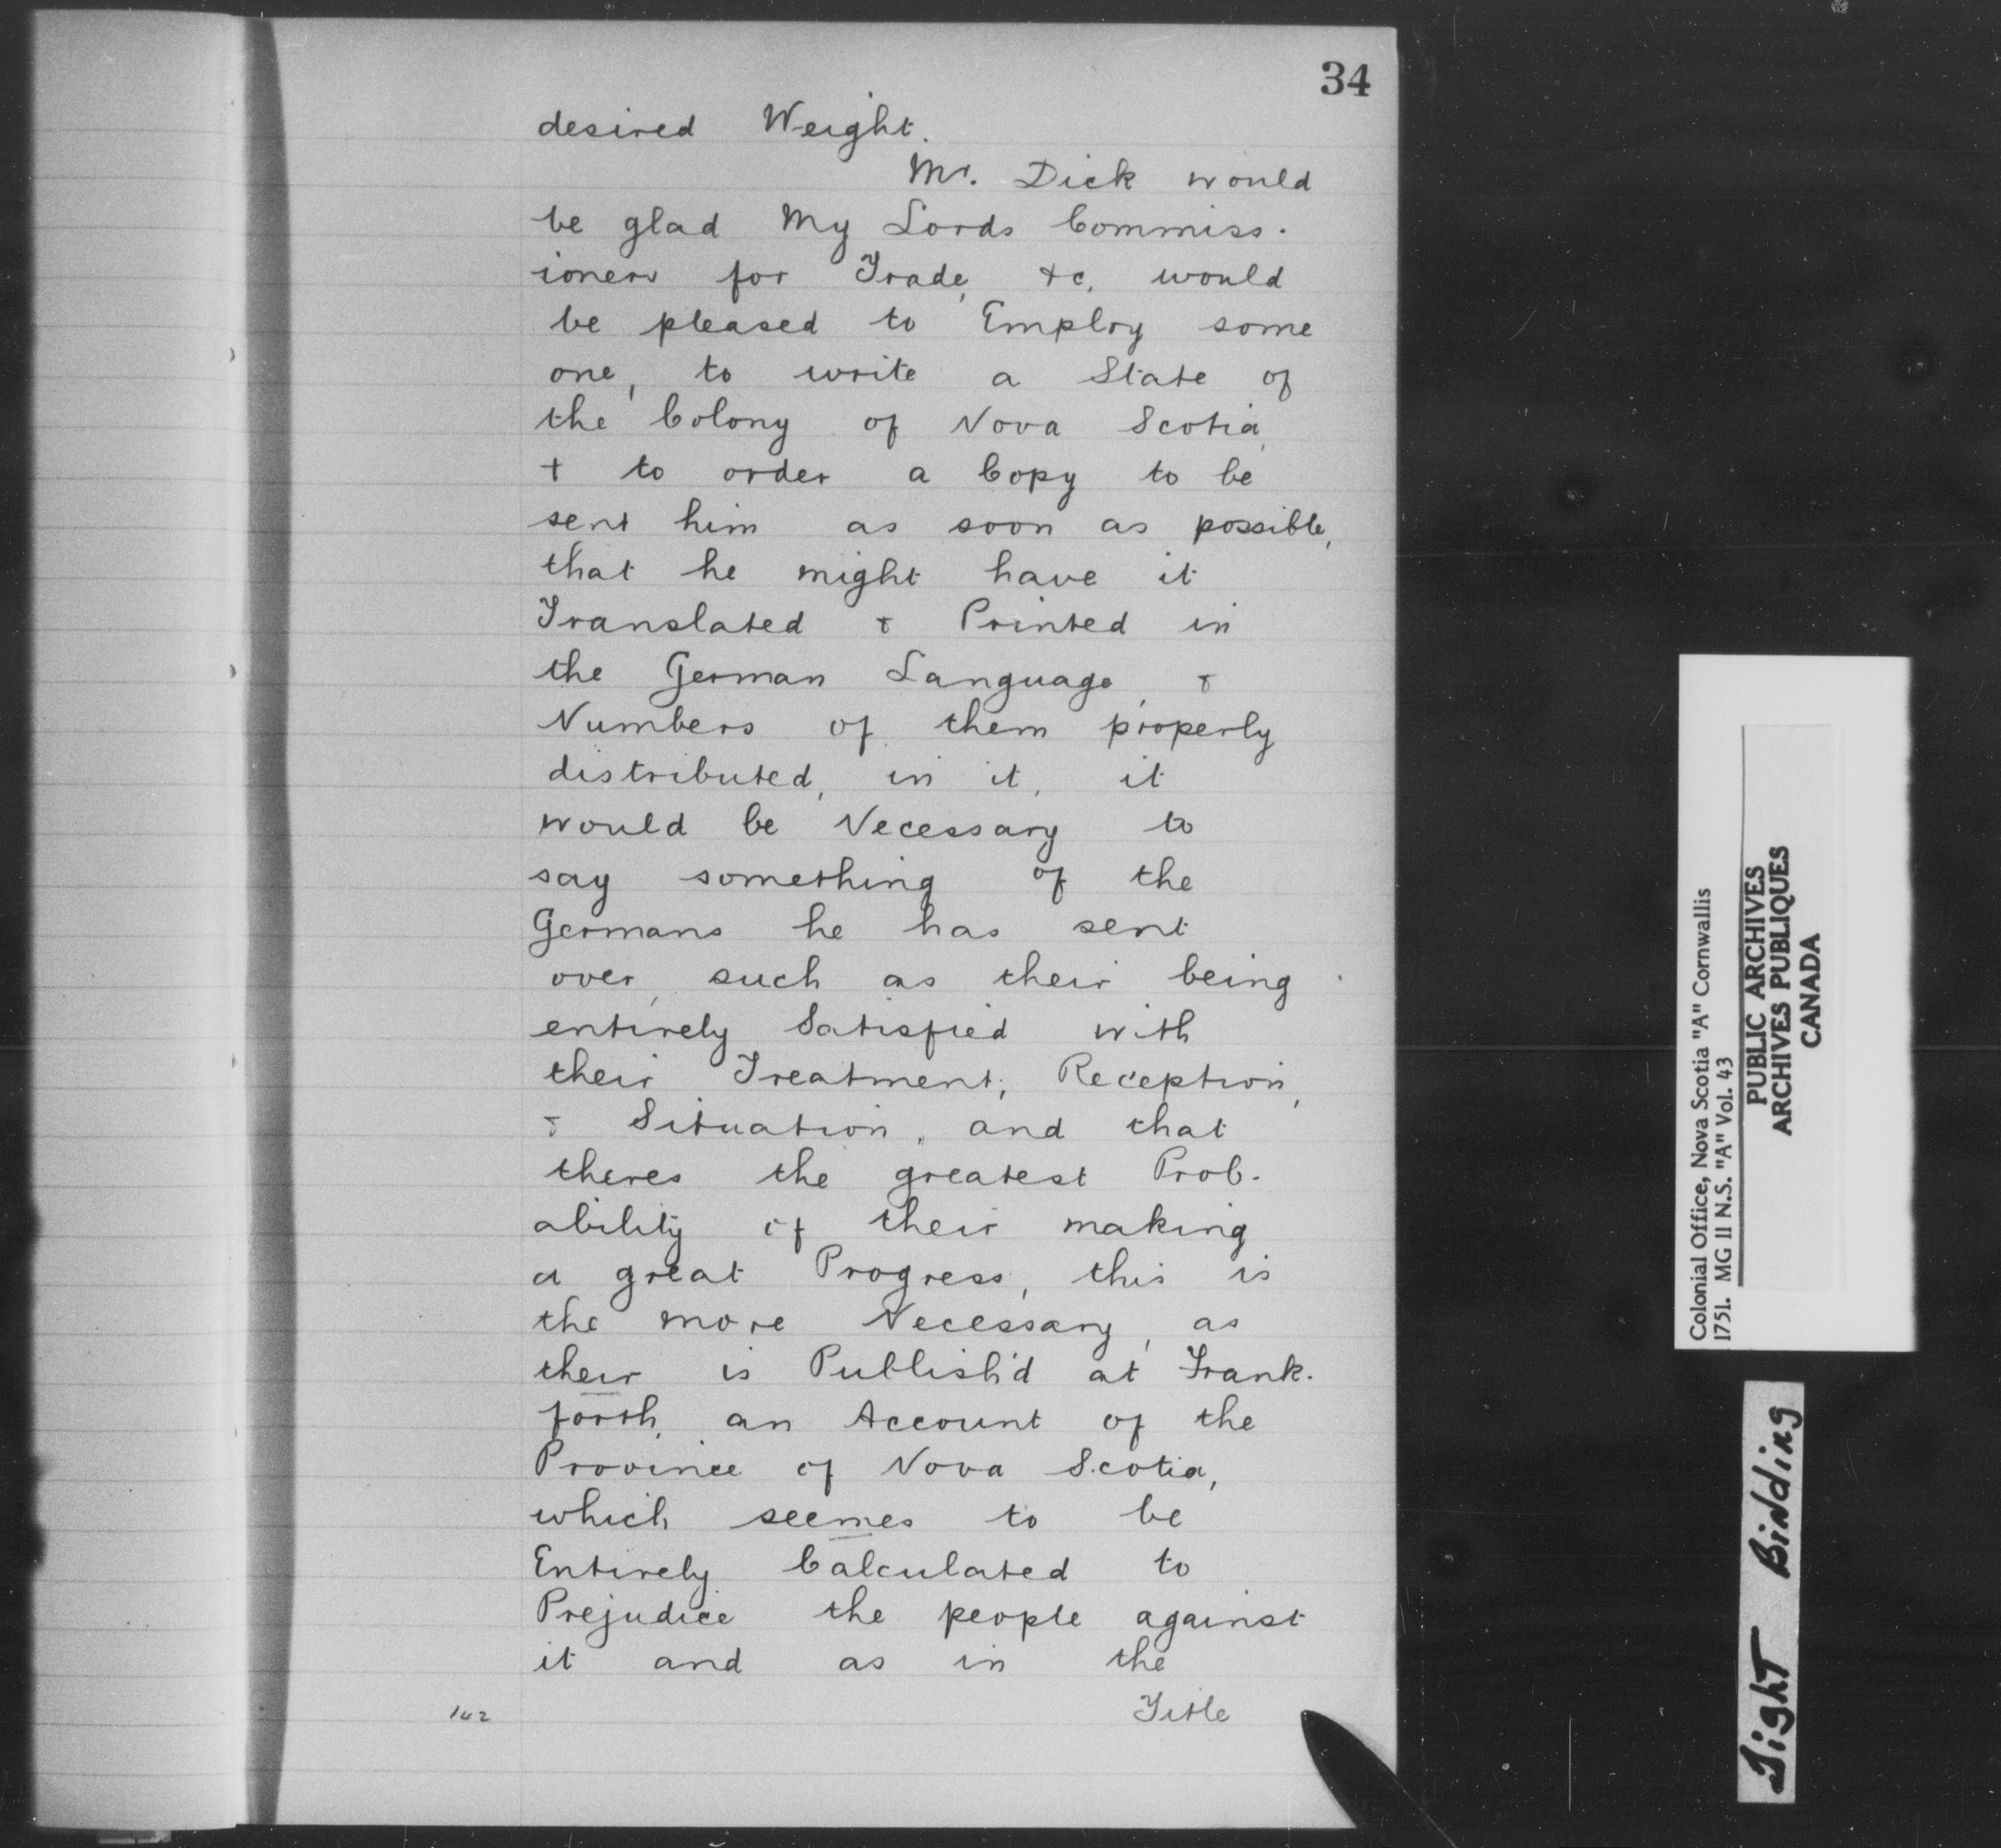 34
desired Weight.
Mr. Dick would
be glad My Lords Commiss-
ioners for Trade, &c, would
be pleased to Employ some
one, to write a State of
the Colony of Nova Scotia,
& to order a Copy to be
sent him as soon as possible,
that he might have it
Translated & Printed in
the German Language, &
Numbers of them properly
distributed, in it, it
would be Necessary to
say something of the
Germans he has sent
over, such as their being
entirely Satisfied with
their Treatment, Reception,
& Situation, and that
theres the greatest Prob-
ability of their making
a great Progress, this is
the more Necessary, as
their is Publish'd at Frank-
forth, an Account of the
Province of Nova Scotia,
which seemes to be
Entirely Calculated to
Prejudice the people against
it and as in the
Title
142
Colonial Office, Nova Scotia "A" Cornwallis
1751. MG 11 N.S. "A" Vol. 43
PUBLIC ARCHIVES
ARCHIVES PUBLIQUES
CANADA
Tight Binding